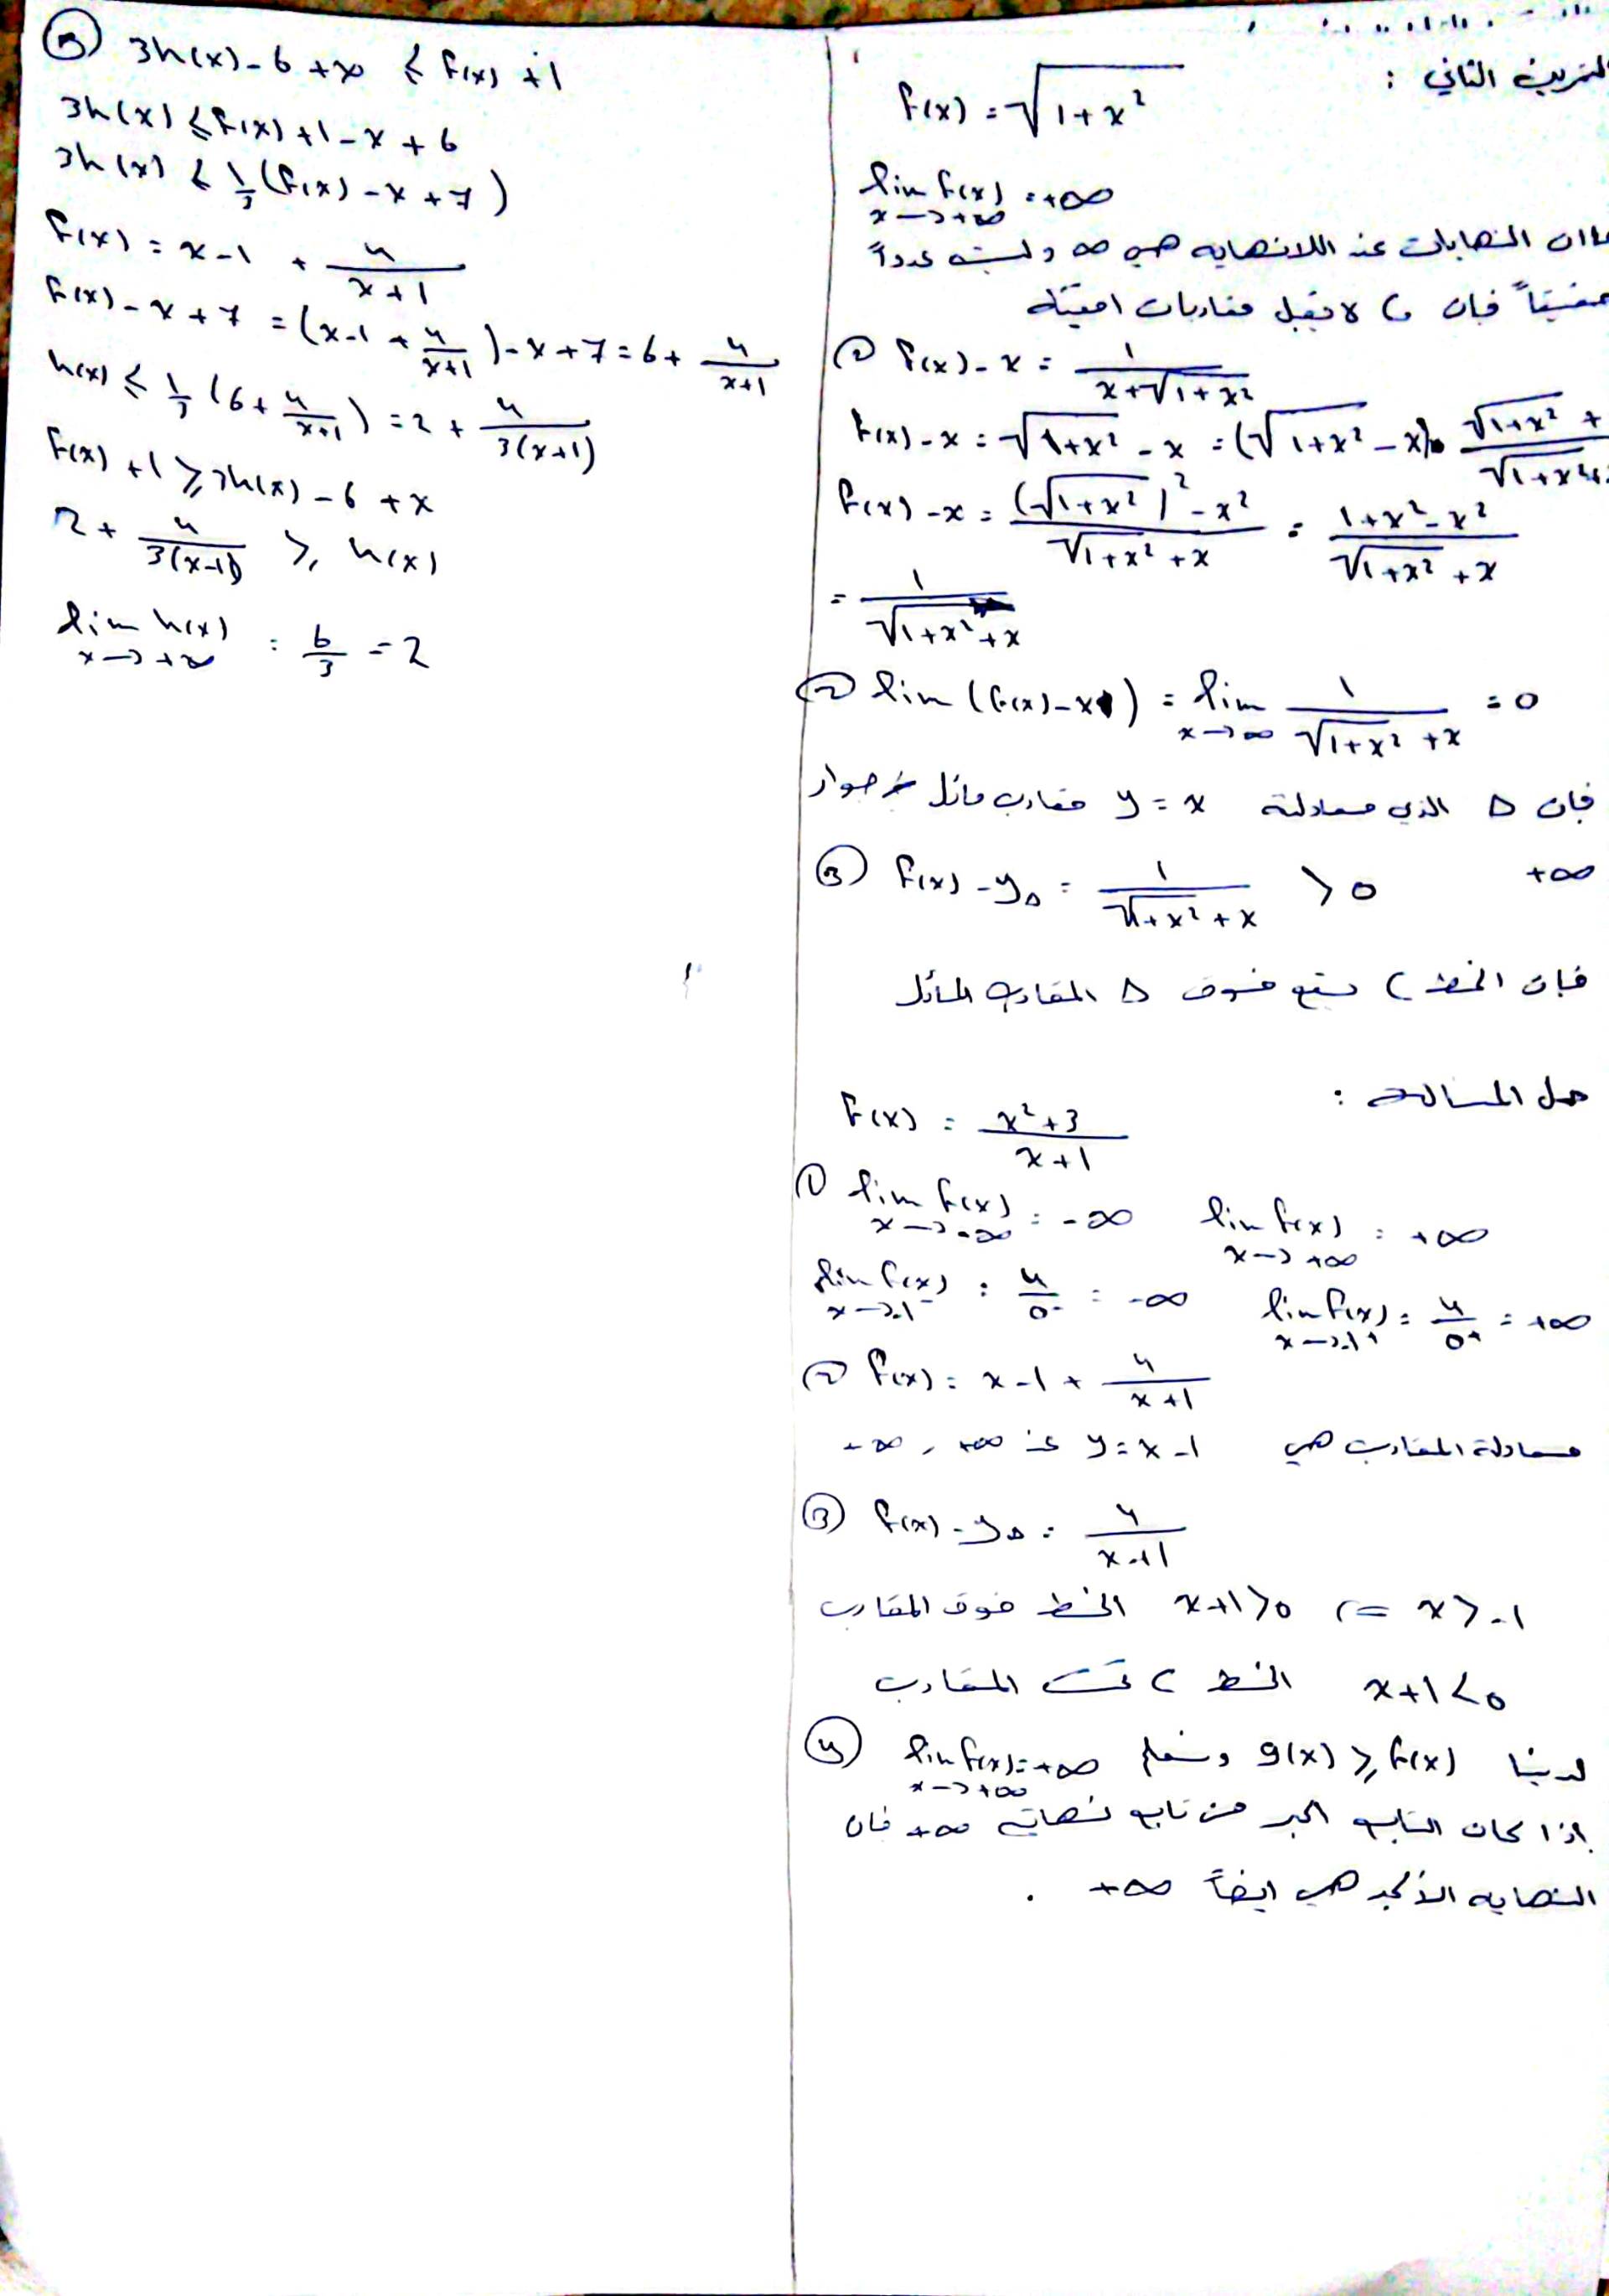 التمرين الثاني :
f(x) = √(1+x²)
lim f(x) = +∞
x→+∞
بما ان النهايات عند اللانهايه هي ∞ وليست عدداً
حقيقياً فإن C لا تقبل مقاربات افقية
① f(x) - x = 1/(x+√(1+x²))
f(x) - x = √(1+x²) - x = (√(1+x²) - x) · (√(1+x²) +)/(√(1+x²)+
f(x) - x = ((√(1+x²))² - x²)/(√(1+x²) + x) = (1+x²-x²)/(√(1+x²) + x)
= 1/(√(1+x²) + x)
② lim (f(x) - x) = lim x→∞ 1/(√(1+x²) + x) = 0
فإن Δ الذي معادلته y = x مقارب مائل جوار
+∞
③ f(x) - y_Δ = 1/(√(1+x²) + x) > 0
فإن الخط C يقع فوق Δ المقارب المائل
حل المسالة :
f(x) = (x²+3)/(x+1)
① lim f(x) x→-∞ = -∞ lim f(x) x→+∞ = +∞
lim f(x) x→-1⁻ = 4/0⁻ = -∞ lim f(x) x→-1⁺ = 4/0⁺ = +∞
② f(x) = x - 1 + 4/(x+1)
معادلة المقارب هي y = x - 1 عند +∞ , -∞
③ f(x) - y_Δ = 4/(x+1)
x > -1 => x+1 > 0 الخط فوق المقارب
x+1 < 0 الخط C تحت المقارب
④ لدينا g(x) ≥ f(x) ونعلم lim f(x) = +∞
x→+∞
اذا كان التابع اكبر من تابع نهايته +∞ فان
النهايه الأكبر هي ايضاً +∞ .
⑤ 3h(x) - 6 + x ≤ f(x) + 1
3h(x) ≤ f(x) + 1 - x + 6
3h(x) ≤ 1/3 (f(x) - x + 7)
f(x) = x - 1 + 4/(x+1)
f(x) - x + 7 = (x - 1 + 4/(x+1)) - x + 7 = 6 + 4/(x+1)
h(x) ≤ 1/3 (6 + 4/(x+1)) = 2 + 4/(3(x+1))
f(x) + 1 ≥ 3h(x) - 6 + x
2 + 4/(3(x+1)) ≥ h(x)
lim h(x) = 6/3 = 2
x→+∞